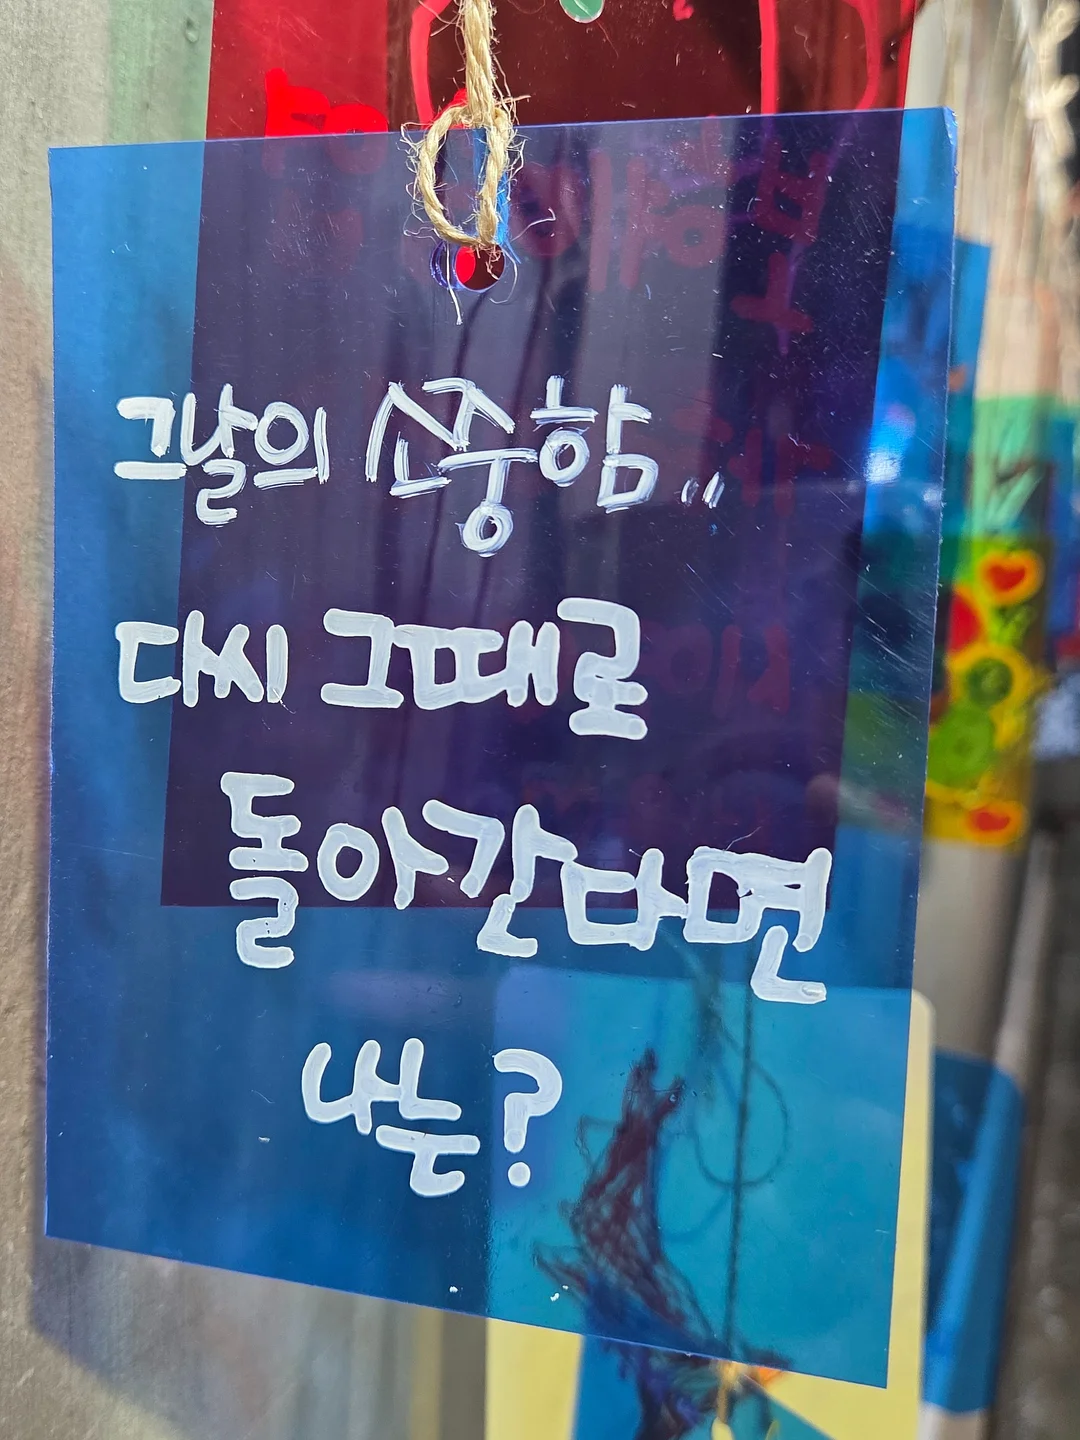 그날의 소중함..
다시 그때로
돌아간다면
나는?